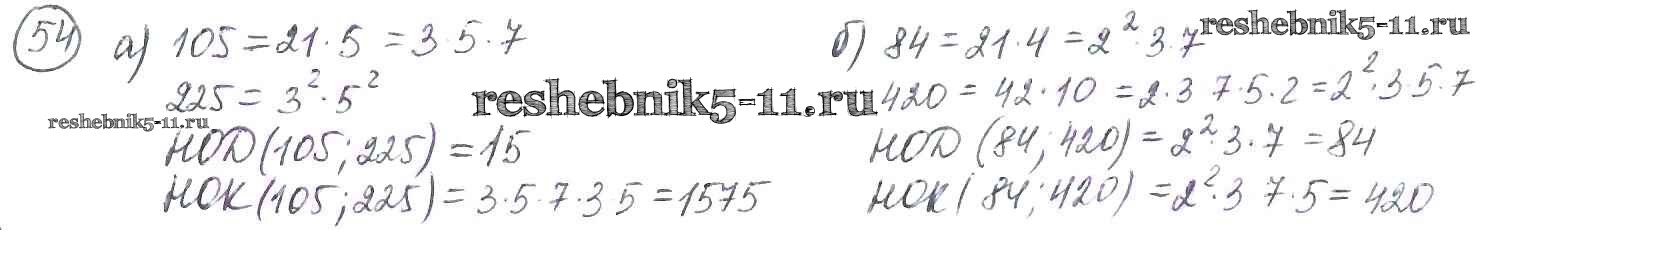 54 а) 105 = 21 · 5 = 3 · 5 · 7
225 = 3² · 5²
НОД (105; 225) = 15
НОК (105; 225) = 3 · 5 · 7 · 3 5 = 1575
б) 84 = 21 · 4 = 2² · 3 · 7
420 = 42 · 10 = 2 · 3 7 · 5 · 2 = 2² · 3 · 5 · 7
НОД (84; 420) = 2² · 3 · 7 = 84
НОК (84; 420) = 2² · 3 7 · 5 = 420
reshebnik5-11.ru
reshebnik5-11.ru
reshebnik5-11.ru